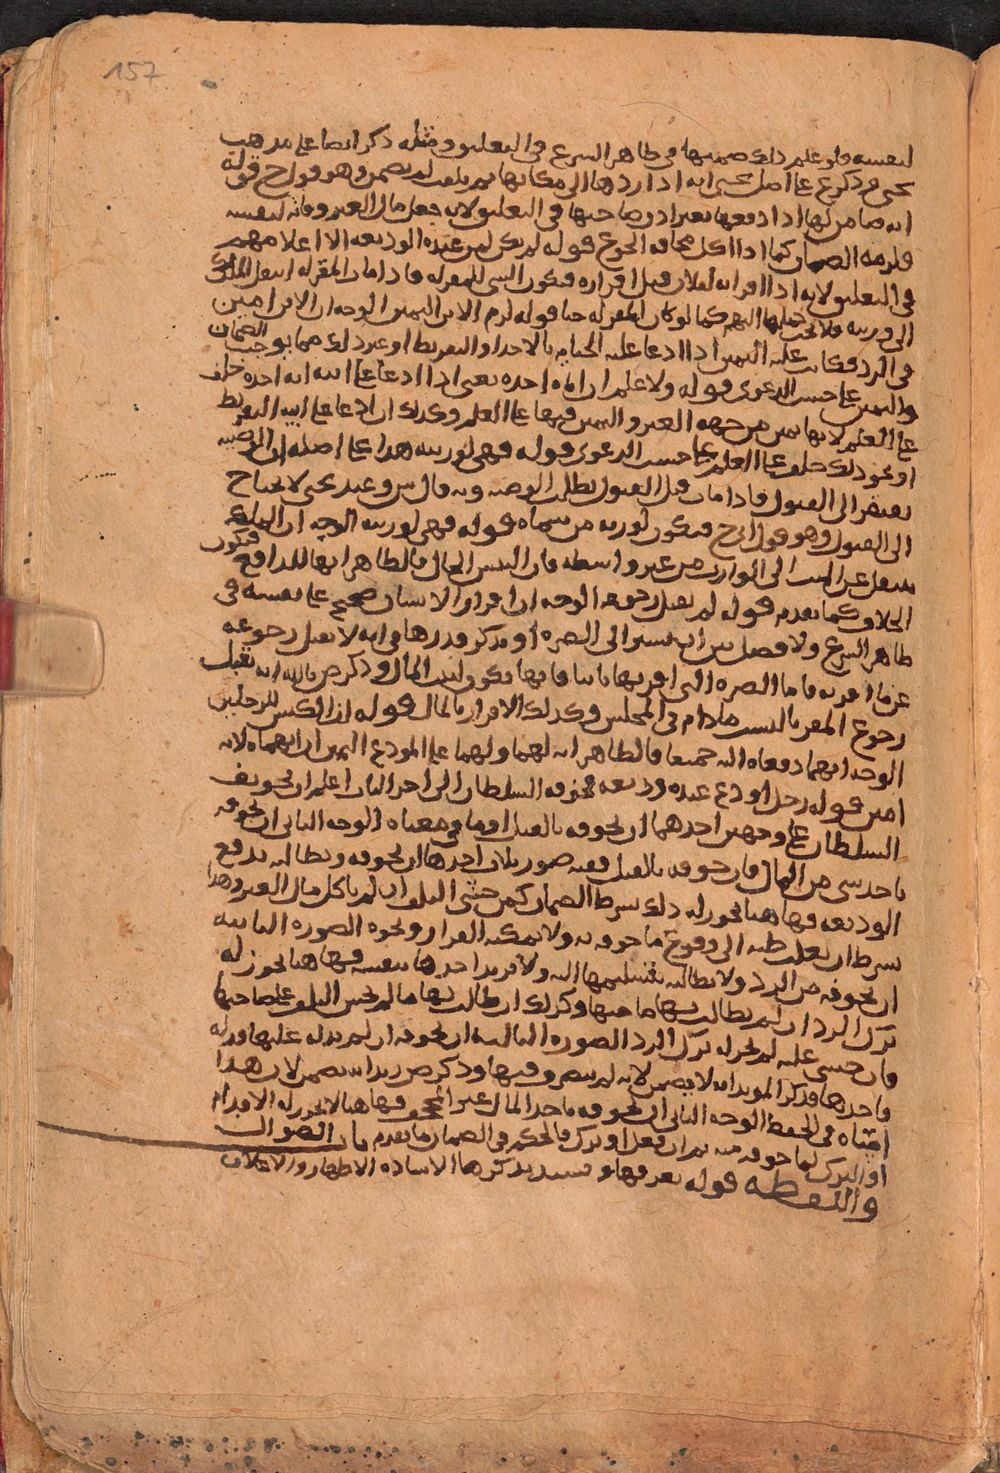 157
لنفسه فلو علم ذلك ضمنها في ظاهر الشرع في التعليق ومثله ذكر ايضا على مذهب
يحيى وذكر ع على اصل يحيى انه اذا ردها الى مكانها ثم تلفت لم يضمن وهو قول ح قوله
انه ضامن لها اذا دفعها بغير اذن صاحبها في التعليق لانه جعل مال الغير وقاية لنفسه
فلزمه الضمان كما اذا اكل مخافة الجوع قوله لم يكن لمن عنده الوديعة الا اعلامهم
في التعليق لانه اذا اقر انه لفلان قبل اقراره فيكون الشي للمقر له فاذا مات المقر له انتقل الملك
الى ورثته فلا يجب حملها اليهم كما لو كان المقر له حيا قوله لزم الابن اليمين الوجه ان الابن امين
في الرد فكانت عليه اليمين اذا ادعا عليه الجناية بالاخذ او التفريط او غير ذلك مما يوجب الضمان
واليمين على حسب الدعوى قوله ولا علم ان اباه اخذه يعني اذا ادعا على ابيه انه اخذه حلف
على العلم لانها يمين من جهة الغير واليمين فيها على العلم وكذلك ان ادعا على ابيه التفريط
او نحو ذلك حلف على العلم على حسب الدعوى قوله فهي لورثته هذا على اصله ان الوصية
تفتقر الى القبول فاذا مات قبل القبول بطلت الوصية وبه قال ش وعند يحيى لا يحتاج
الى القبول وهو قول ح فيكون لورثة من سماه قوله فهي لورثته الوجه ان الملك
ينتقل عن الميت الى الوارث من غير واسطة فان التبس الحال فالظاهر انها للدافع فيكون
الخلاف كما تقدم قوله لم يقبل رجوعه الوجه ان اقرار الانسان صحيح على نفسه في
ظاهر الشرع ولا فصل بين ان يشير الى الصرة او يذكر قدرها في انه لا يقبل رجوعه
عن ما اقر به فاما الصرة التي اقر بها ثانيا فانها تكون لبيت المال وذكر ص بالله انه يقبل
رجوع المقر بالنسب ما دام في المجلس وكذلك الاقرار بالمال قوله اذا الكيس للرجلين
الوجه انهما دفعاه اليه جميعا فالظاهر انه لهما ولهما على المودع اليمين ان ابهماه لانه
امين قوله رجل اودع عنده وديعة فخوفه السلطان الى اخر الباب اعلم ان تخويف
السلطان على وجهين احدهما ان يخوفه بالقتل او ما في معناه الوجه الثاني ان يخوفه
باخذ شي من المال فان خوفه بالقتل ففيه صور ثلاث احدها ان يخوفه ويطالبه بدفع
الوديعة فها هنا يجوز له ذلك بشرط الضمان كمن خشي التلف ان لم ياكل مال الغير وهذا
بشرط ان يغلب ظنه الى وقوع ما خوف به ولا يمكنه الفرار ونحوه الصورة الثانية
ان يخوفه من الرد ولا يطالبه بتسليمها اليه ولا يريد اخذها بنفسه فها هنا يجوز له
ترك الرد ان لم يطالب بها صاحبها وكذلك ان طالب بها ما لم يخش التلف على صاحبها
فان خشي عليه لم يجز له ترك الرد الصورة الثالثة ان يخوفه ان لم يدله عليها فدله
فاخذها فذكر المؤيد انه لا يضمن لانه لم يتصرف فيها وذكر ص زيد انه يضمن لان هذا
خيانة في الحفظ الوجه الثاني ان يخوفه باخذ المال غير المجحف فها هنا لا يجوز له الاقدام
او الترك لما خوف منه ثم ان فعل او ترك فالحكم في الضمان ما تقدم باب الضوال
واللقطة قوله يعرفها وينشد بذكرها الاشادة الاظهار والاعلان